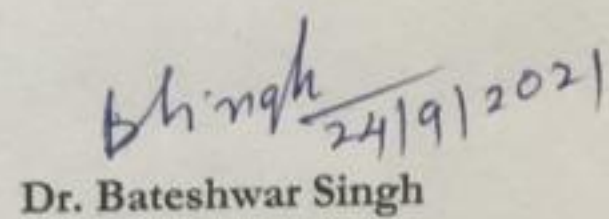 BSingh
24/9/2021
Dr. Bateshwar Singh